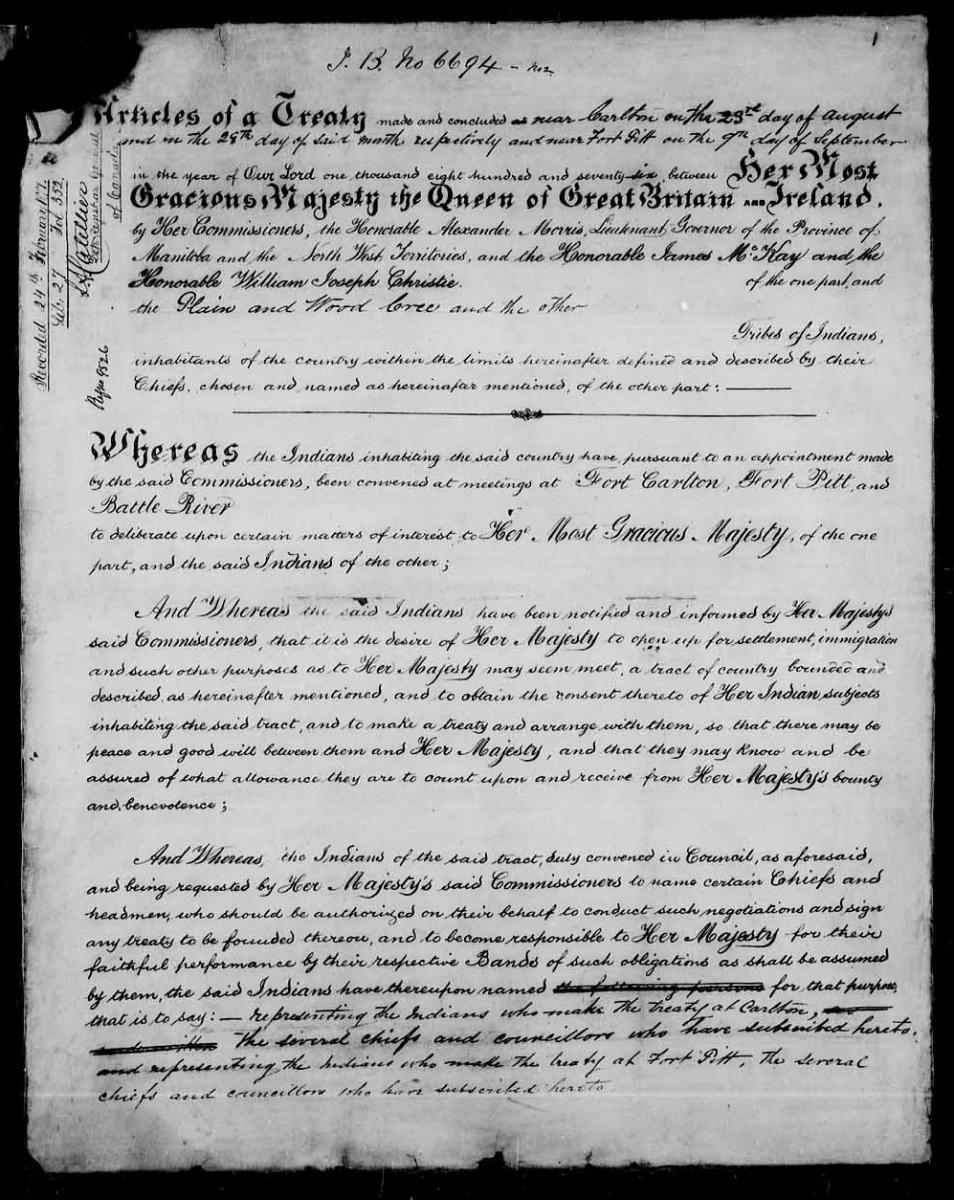 1
I. B. No 6694 -
Articles of a Treaty made and concluded near Carlton on the 23rd day of August
and on the 28th day of said month respectively and near Fort Pitt on the 9th day of September
in the year of Our Lord one thousand eight hundred and seventy-six, between Her Most
Gracious Majesty the Queen of Great Britain and Ireland,
by Her Commissioners, the Honorable Alexander Morris, Lieutenant Governor of the Province of
Manitoba and the North West Territories, and the Honorable James McKay and the
Honorable William Joseph Christie. of the one part, and
the Plain and Wood Cree and the other
Tribes of Indians,
inhabitants of the country within the limits hereinafter defined and described by their
Chiefs, chosen and named as hereinafter mentioned, of the other part: —
Recorded 24th February 1877
Lib. 27 Fol 352
of Canada
Whereas the Indians inhabiting the said country have, pursuant to an appointment made
by the said Commissioners, been convened at meetings at Fort Carlton, Fort Pitt, and
Battle River
to deliberate upon certain matters of interest to Her Most Gracious Majesty, of the one
part, and the said Indians of the other;
And Whereas the said Indians have been notified and informed by Her Majesty's
said Commissioners, that it is the desire of Her Majesty to open up for settlement, immigration
and such other purposes as to Her Majesty may seem meet, a tract of country bounded and
described as hereinafter mentioned, and to obtain the consent thereto of Her Indian subjects
inhabiting the said tract, and to make a treaty and arrange with them, so that there may be
peace and good will between them and Her Majesty, and that they may know and be
assured of what allowance they are to count upon and receive from Her Majesty's bounty
and benevolence;
And Whereas, the Indians of the said tract, duly convened in Council, as aforesaid,
and being requested by Her Majesty's said Commissioners to name certain Chiefs and
headmen, who should be authorized on their behalf to conduct such negotiations and sign
any treaty to be founded thereon, and to become responsible to Her Majesty for their
faithful performance by their respective Bands of such obligations as shall be assumed
by them, the said Indians have thereupon named the following persons for that purpose,
that is to say: — representing the Indians who make the treaty at Carlton,
the several chiefs and councillors who have subscribed hereto.
and representing the Indians who make the treaty at Fort Pitt, the several
chiefs and councillors who have subscribed hereto